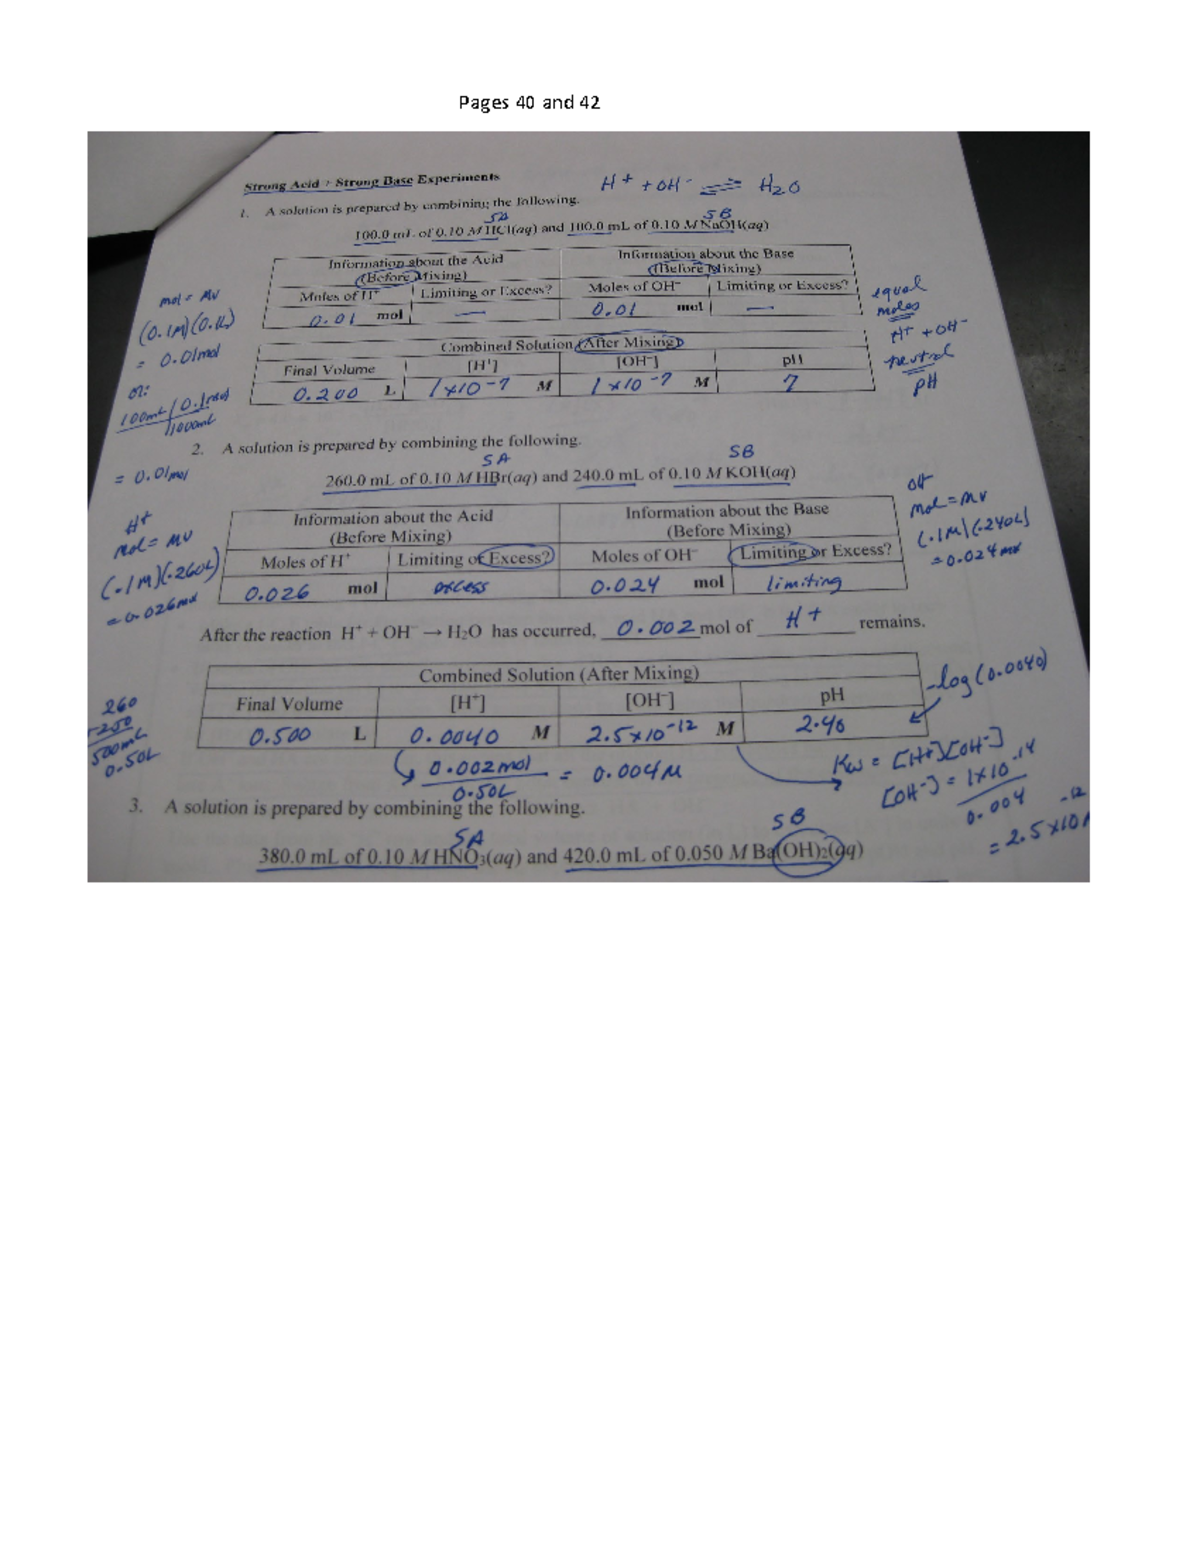 Pages 40 and 42
Strong Acid + Strong Base Experiments
H+ + OH- ⇌ H2O
1. A solution is prepared by combining the following.
SA SB
100.0 mL of 0.10 M HCl(aq) and 100.0 mL of 0.10 M NaOH(aq)
Information about the Acid Information about the Base
(Before Mixing) (Before Mixing)
Moles of H+ Limiting or Excess? Moles of OH- Limiting or Excess?
0.01 mol — 0.01 mol —
mol = MV
(0.1M)(0.1L)
= 0.01mol
or:
100mL | 0.1mol
1000mL
= 0.01mol
equal
moles
H+ + OH-
neutral
pH
Combined Solution (After Mixing)
Final Volume [H+] [OH-] pH
0.200 L 1x10-7 M 1x10-7 M 7
2. A solution is prepared by combining the following.
SA SB
260.0 mL of 0.10 M HBr(aq) and 240.0 mL of 0.10 M KOH(aq)
Information about the Acid Information about the Base
(Before Mixing) (Before Mixing)
Moles of H+ Limiting or Excess? Moles of OH- Limiting or Excess?
0.026 mol excess 0.024 mol limiting
H+
mol = MV
(.1M)(.260L)
= 0.026mol
OH
mol = MV
(.1M)(.240L)
= 0.024mol
After the reaction H+ + OH- → H2O has occurred, 0.002 mol of H+ remains.
Combined Solution (After Mixing)
Final Volume [H+] [OH-] pH
0.500 L 0.0040 M 2.5x10-12 M 2.40
-log(0.0040)
260
500mL
0.50L
0.002mol = 0.004M
0.50L
Kw = [H+][OH-]
[OH-] = 1x10-14
0.004
= 2.5x10-12
3. A solution is prepared by combining the following.
SA SB
380.0 mL of 0.10 M HNO3(aq) and 420.0 mL of 0.050 M Ba(OH)2(aq)